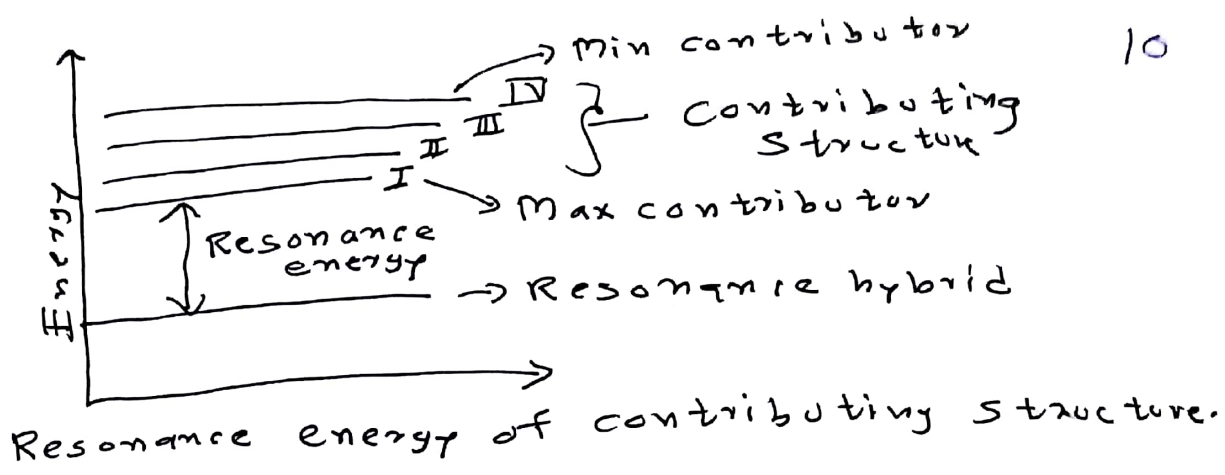 Min contributor
10
IV
III
II
I
Contributing
Structure
Max contributor
Resonance
energy
Resonance hybrid
Energy
Resonance energy of contributing structure.